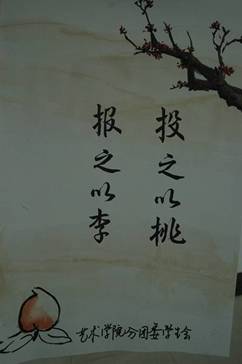 投之以桃
报之以李
艺术学院分团委学生会